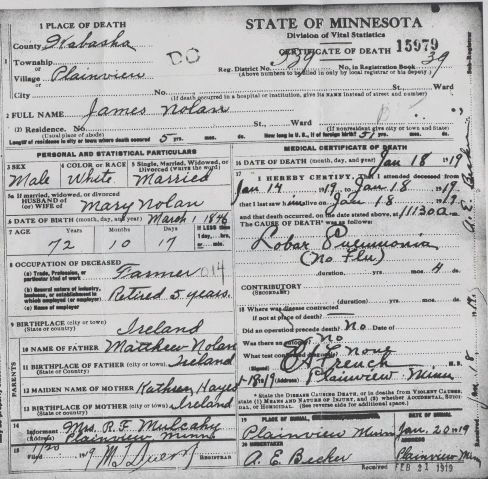 STATE OF MINNESOTA
Division of Vital Statistics
CERTIFICATE OF DEATH 15979
1 PLACE OF DEATH
County Wabasha
Township
or
Village Plainview
or
City
DO
Reg. District No. 539 No. in Registration Book 39
(Above numbers to be filled in only by local registrar or his deputy.)
No. St. Ward
(If death occurred in a hospital or institution, give its NAME instead of street and number)
2 FULL NAME James Nolan
(1) Residence. No. St. Ward
(Usual place of abode) (If nonresident give city or town and State)
Length of residence in city or town where death occurred 5 yrs. mos. ds. How long in U. S., if of foreign birth? 51 yrs. mos. ds.
PERSONAL AND STATISTICAL PARTICULARS
3 SEX
Male
4 COLOR OR RACE
White
5 Single, Married, Widowed, or Divorced (write the word)
Married
5a If married, widowed, or divorced
HUSBAND of
(or) WIFE of Mary Nolan
6 DATE OF BIRTH (month, day, and year) March 1 1846
7 AGE
72 10 17
If LESS than
1 day, hrs.
or min.
8 OCCUPATION OF DECEASED
(a) Trade, Profession, or
particular kind of work Farmer 014
(b) General nature of industry,
business, or establishment in
which employed (or employer) Retired 5 years.
(c) Name of employer
9 BIRTHPLACE (city or town)
(State or country) Ireland
PARENTS
10 NAME OF FATHER Matthew Nolan
11 BIRTHPLACE OF FATHER (city or town)
(State or Country) Ireland
12 MAIDEN NAME OF MOTHER Kathren Hayes
13 BIRTHPLACE OF MOTHER (city or town)
(State or Country) Ireland
14
Informant Mrs. R. F. Mulcahy
(Address) Plainview Minn
15
Filed 1/20 1919
REGISTRAR
MEDICAL CERTIFICATE OF DEATH
16 DATE OF DEATH (month, day, and year) Jan 18 1919
17
I HEREBY CERTIFY, That I attended deceased from
Jan 14 1919, to Jan 18 1919
that I last saw him alive on Jan 18 1919
and that death occurred, on the date stated above, at 11:30 a m.
The CAUSE OF DEATH* was as follows:
Lobar Pneumonia
(No Flu)
(duration) yrs. mos. 4 ds.
CONTRIBUTORY
(SECONDARY)
(duration) yrs. mos. ds.
18 Where was disease contracted
if not at place of death?
Did an operation precede death? No Date of
Was there an autopsy? No
What test confirmed diagnosis? None
(Signed) French M.D.
1-18-1919 (Address) Plainview Minn
* State the DISEASE CAUSING DEATH, or in deaths from VIOLENT CAUSES, state (1) MEANS AND NATURE OF INJURY, and (2) whether ACCIDENTAL, SUICIDAL, or HOMICIDAL. (See reverse side for additional space).
19 PLACE OF BURIAL
Plainview Minn
DATE OF BURIAL
Jan. 20 1919
20 UNDERTAKER
A. E. Becker
ADDRESS
Plainview Minn
Received FEB 21 1919